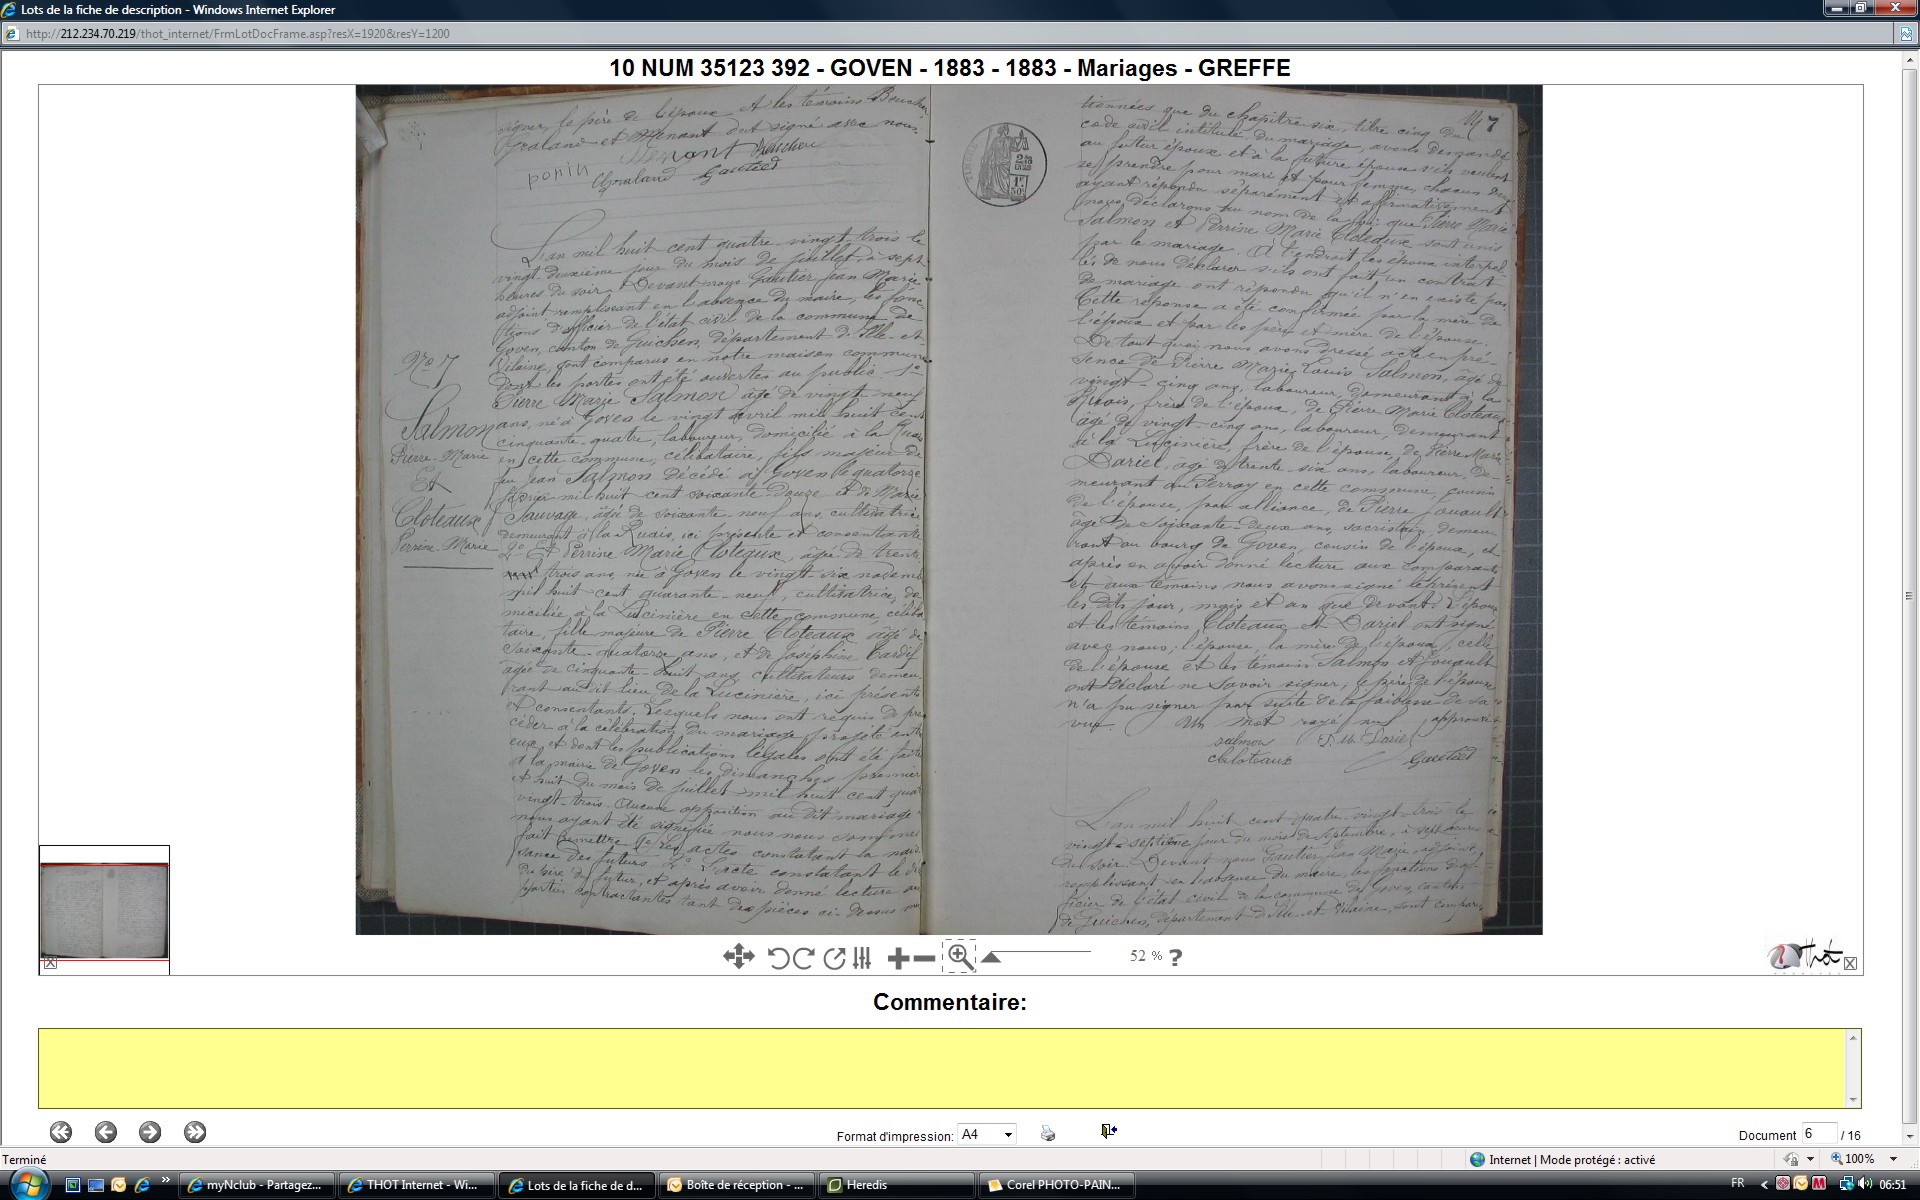 Lots de la fiche de description - Windows Internet Explorer
http://212.234.70.219/thot_internet/FrmLotDocFrame.asp?resX=1920&resY=1200
10 NUM 35123 392 - GOVEN - 1883 - 1883 - Mariages - GREFFE
signer, le père de l'époux et les témoins
et Menant ont signé avec nous.
Menant
ponin
Gautier
L'an mil huit cent quatre-vingt-trois le
vingt deuxième jour du mois de juillet, à sept
heures du soir. Devant nous Gautier Jean Marie
adjoint remplissant en l'absence du maire, les fonc-
tions d'officier de l'état civil de la commune de
Goven, canton de Guichen, département d'Ille-et-
Vilaine, sont comparus en notre maison commune
dont les portes ont été ouvertes au public 1º
Pierre Marie Salmon âgé de vingt neuf
ans, né à Goven le vingt avril mil huit cent
cinquante-quatre, laboureur, domicilié à la
en cette commune, célibataire, fils majeur de
feu Jean Salmon décédé à Goven le quatorze
mil huit cent soixante-douze et de Marie
Sauvage, âgée de soixante-neuf ans, cultivatrice
demeurant à la ici présente et consentante
2º Et Perrine Marie Cloteaux, âgée de trente
trois ans, née à Goven le vingt six novembre
mil huit cent quarante-neuf, cultivatrice, do-
miciliée à la Lucinière en cette commune, céliba-
taire, fille majeure de Pierre Cloteaux âgé de
soixante-quatorze ans, et de Joséphine Cardif
âgée de cinquante huit ans, cultivateurs demeu-
rant au dit lieu de la Lucinière, ici présents
et consentants. Lesquels nous ont requis de pro-
céder à la célébration du mariage projeté entre
eux, et dont les publications légales ont été faites
à la mairie de Goven les dimanches premier
et huit du mois de juillet mil huit cent quatre
vingt-trois. Aucune opposition au dit mariage
nous ayant été signifiée nous nous sommes
fait remettre 1º les actes constatant la nais-
sance des futurs 2º L'acte constatant le décès
du père du futur, et après avoir donné lecture aux
parties contractantes tant des pièces ci-dessus men-
No 7
Salmon
Pierre-Marie
Et
Cloteaux
Perrine-Marie
7
tionnées que du chapitre six, titre cinq du
code civil intitulé du mariage, avons demandé
au futur époux et à la future épouse s'ils veulent
se prendre pour mari et pour femme, chacun d'eux
ayant répondu séparément et affirmativement
nous déclarons au nom de la loi que Pierre Marie
Salmon et Perrine Marie Cloteaux sont unis
par le mariage. A l'endroit les époux interpel-
lés de nous déclarer s'ils ont fait un contrat
de mariage ont répondu qu'il n'en existe pas.
Cette réponse a été confirmée par la mère de
l'époux et par les père et mère de l'épouse.
De tout quoi nous avons dressé acte en pré-
sence de Pierre Marie Louis Salmon, âgé de
vingt-cinq ans, laboureur, demeurant à la
frère de l'époux, de Pierre Marie Cloteaux
âgé de vingt-cinq ans, laboureur, demeurant
à la Lucinière, frère de l'épouse, de Pierre Marie
Dariel, âgé de trente-six ans, laboureur, de-
meurant au Perray en cette commune, cousin
de l'épouse, par alliance, de Pierre Jouault
âgé de soixante-deux ans, sacristain, demeu-
rant au bourg de Goven, cousin de l'époux, et
après en avoir donné lecture aux comparants
et aux témoins nous avons signé le présent
les dits jour, mois et an que devant. L'époux
et les témoins Cloteaux et Dariel ont signé
avec nous; l'épouse, la mère de l'époux, celle
de l'épouse et les témoins Salmon et Jouault
ont déclaré ne savoir signer; le père de l'épouse
n'a pu signer par suite de la faiblesse de sa
vue. Un mot rayé nul approuvé
salmon P. M. Dariel
cloteaux Gautier
L'an mil huit cent quatre-vingt-trois le
vingt-septième jour du mois de septembre, à sept heures
du soir. Devant nous Gautier Jean Marie, adjoint,
remplissant en l'absence du maire, les fonctions d'of-
ficier de l'état civil de la commune de Goven, canton
de Guichen, département d'Ille-et-Vilaine, sont comparus
52 % ?
Thot
Commentaire:
Format d'impression: A4
Document 6 / 16
Terminé
Internet | Mode protégé : activé
100%
myNclub - Partagez...
THOT Internet - Wi...
Lots de la fiche de d...
Boîte de réception - ...
Heredis
Corel PHOTO-PAIN...
FR
06:51